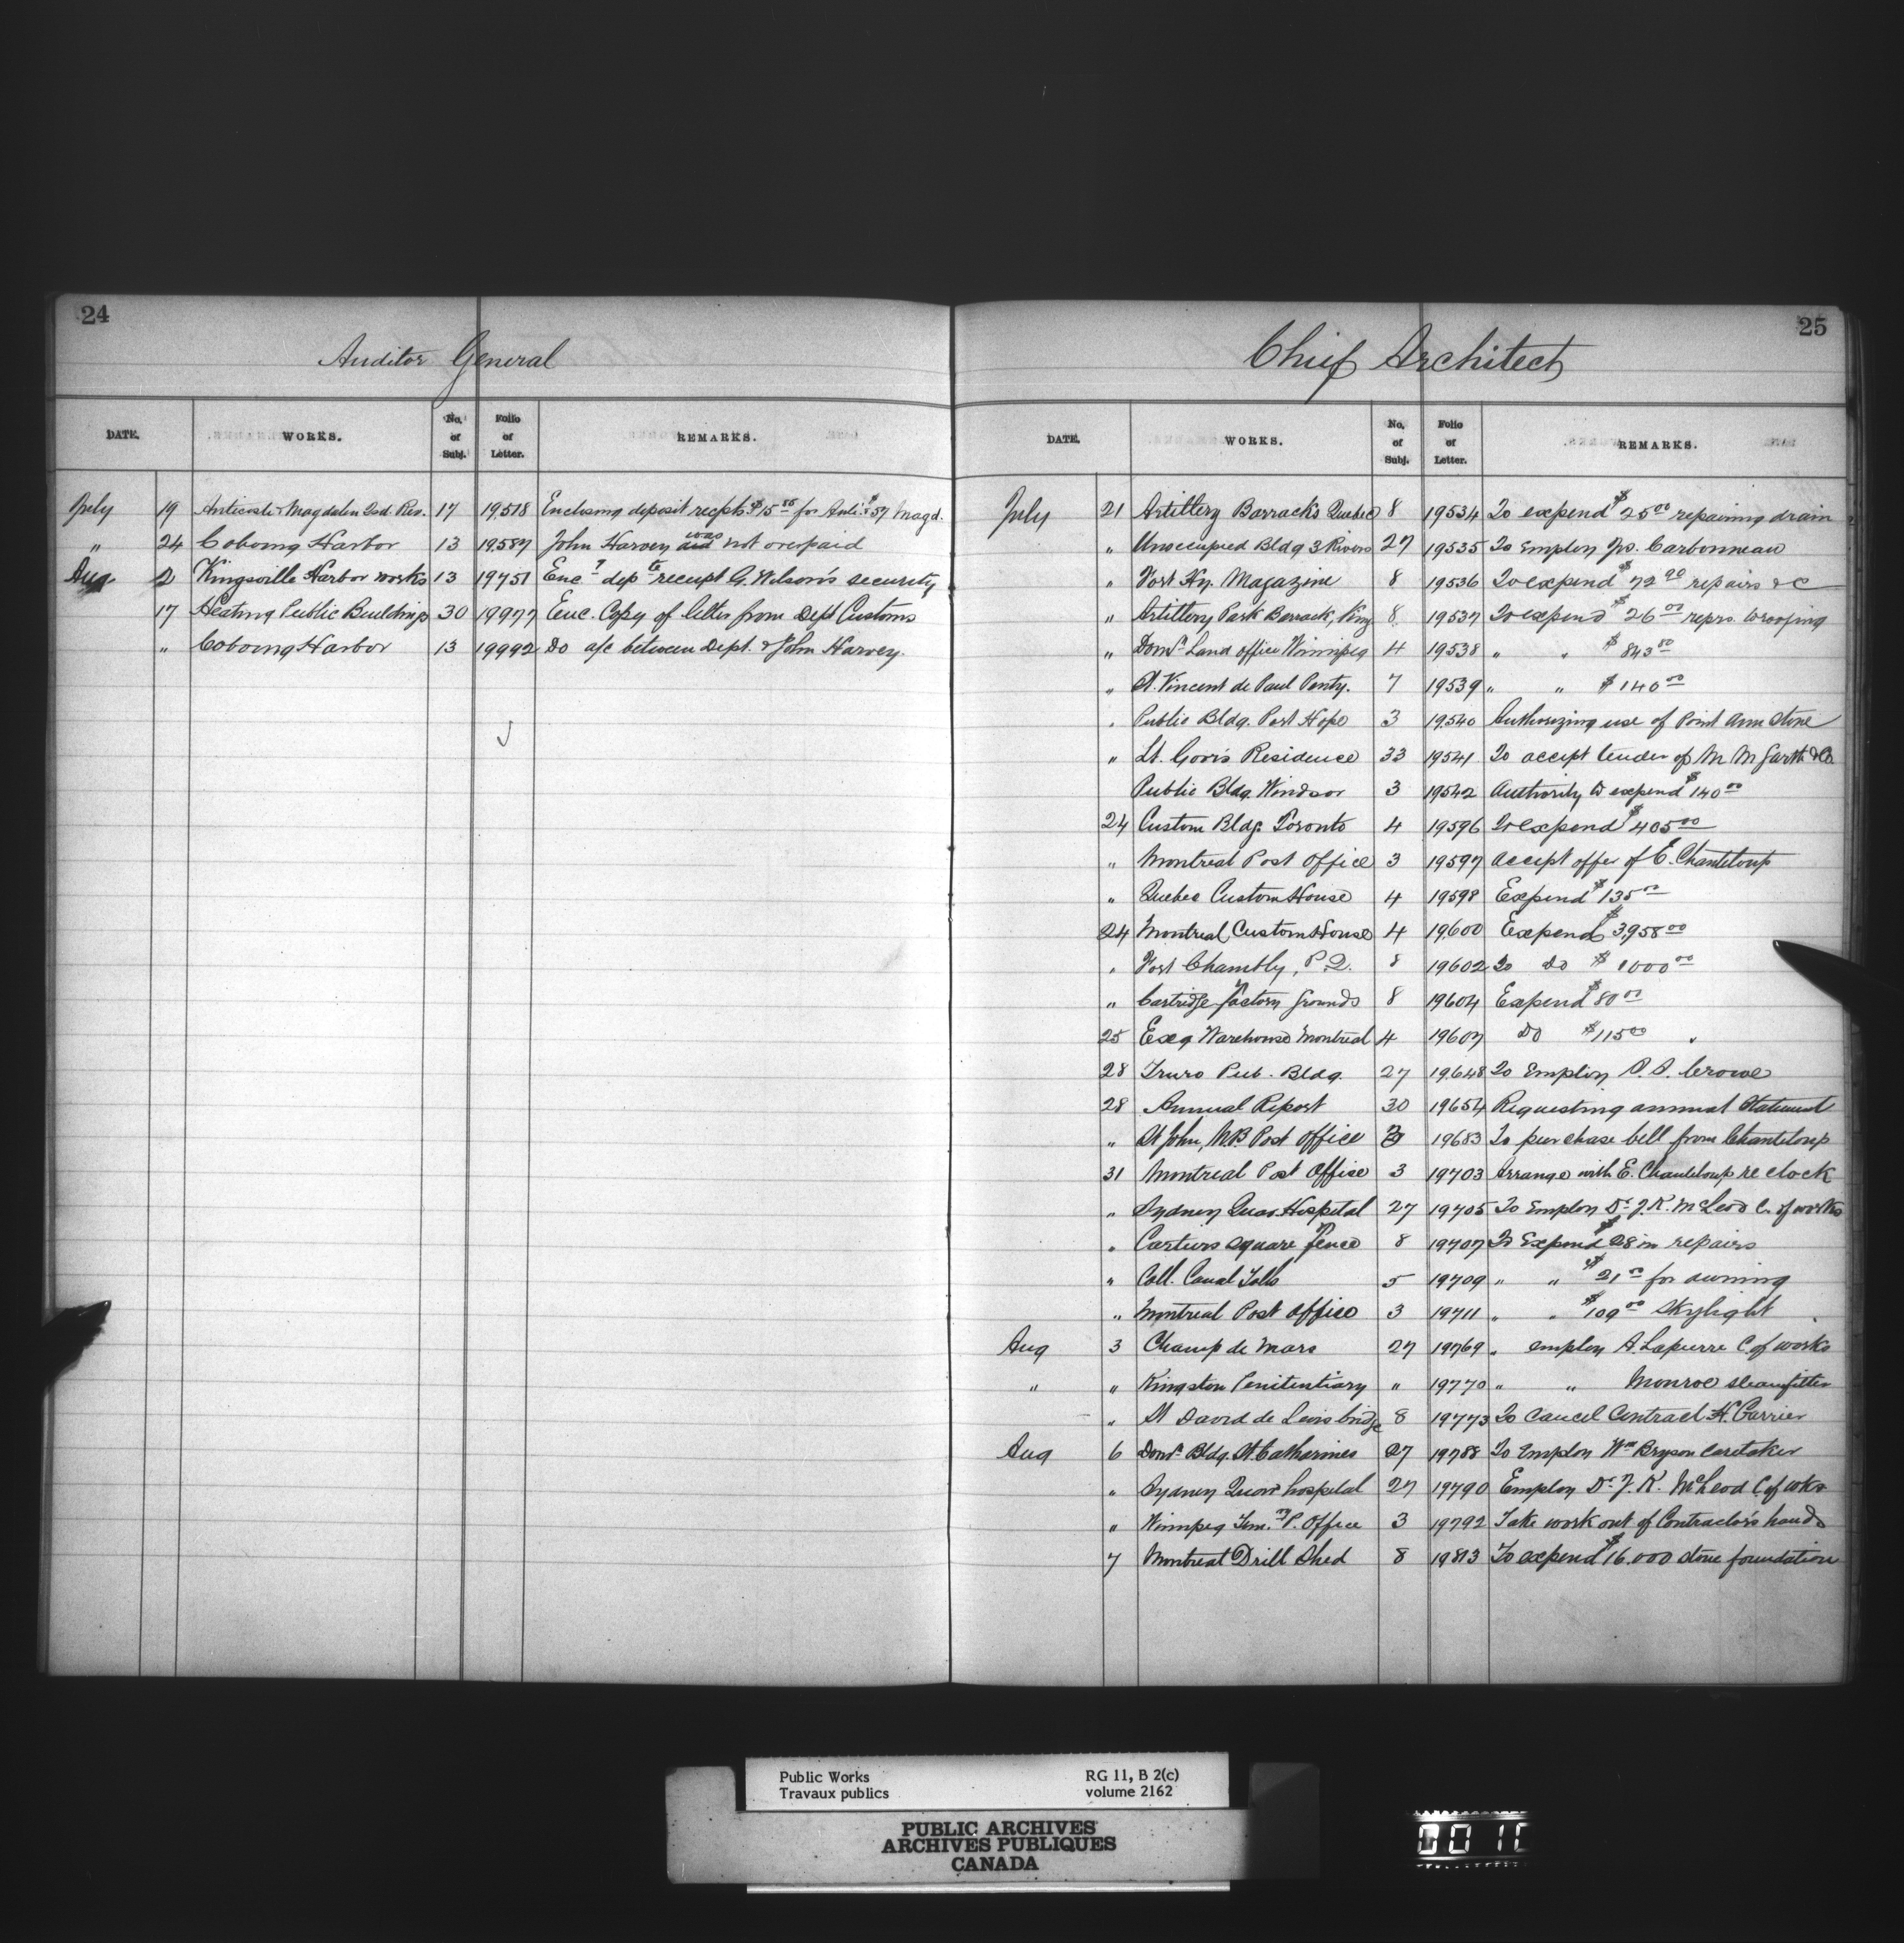 24
Auditor General
DATE. WORKS. No. of Subj. Folio of Letter. REMARKS.
July 19 Anticosti & Magdalen Isd. Rev. 17 19518 Enclosing deposit recpts $15 for Anti. & 57 Magd.
" 24 Cobourg Harbor 13 19587 John Harvey was not overpaid
Aug 2 Kingsville Harbor works 13 19751 Enc dep receipt G. Wilson's security
17 Heating Public Buildings 30 19977 Enc. Copy of letter from Dept Customs
" Cobourg Harbor 13 19992 Do a/c between Dept. & John Harvey.
25
Chief Architect
DATE. WORKS. No. of Subj. Folio of Letter. REMARKS.
July 21 Artillery Barracks Quebec 8 19534 To expend $25 00 repairing drain
" Unoccupied Bldg 3 Rivers 27 19535 To Employ Carbonneau
" Fort Hy. Magazine 8 19536 To expend $72 90 repairs &c
" Artillery Park Barrack, King 8 19537 To expend $26 00 reprs. & roofing
" Domn Land office Winnipeg 4 19538 " " $843 80
" St. Vincent de Paul Penty. 7 19539 " " $140 00
" Public Bldg. Port Hope 3 19540 Authorizing use of Point Ann Stone
" Lt. Gov's Residence 33 19541 To accept tender of M M Garth & Co
Public Bldg. Windsor 3 19542 Authority to expend $140 00
24 Custom Bldg. Toronto 4 19596 To expend $405 00
" Montreal Post Office 3 19597 Accept offer of E. Chanteloup
" Quebec Custom House 4 19598 Expend $135 00
24 Montreal Custom House 4 19600 Expend $3,958 00
" Fort Chambly, P.Q. 8 19602 To do $1000 00
" Cartridge factory grounds 8 19604 Expend $80 00
25 Exg Warehouse Montreal 4 19607 Do $115 00 "
28 Truro Pub. Bldg. 27 19648 To Employ Crowe
28 Annual Report 30 19654 Requesting annual Statement
" St John, N.B Post office 3 19683 To purchase bell from Chanteloup
31 Montreal Post Office 3 19703 Arrange with E. Chanteloup re clock
" Sydney Quar. Hospital 27 19705 To Employ Dr. J. K. McLeod C. of works
" Cartiers square fence 8 19707 To Expend $28 in repairs
" Coll. Canal Tolls 5 19709 " " $21 00 for awning
" Montreal Post office 3 19711 " " $109 00 Skylight
Aug 3 Champ de Mars 27 19769 " employ A. Lapierre C. of works
" " Kingston Penitentiary " 19770 " " Monroe steamfitter
" St David de Levis bridge 8 19773 To Cancel Contract H. Carrier
Aug 6 Domn Bldg. St. Catharines 27 19788 To Employ Wm Bryson caretaker
" Sydney Quar hospital 27 19790 Employ Dr. J. K. McLeod C. of wks
" Winnipeg Temry P. Office 3 19792 Take work out of Contractor's hands
7 Montreal Drill Shed 8 19813 To expend $16.000 stone foundation
Public Works
Travaux publics
RG 11, B 2(c)
volume 2162
PUBLIC ARCHIVES
ARCHIVES PUBLIQUES
CANADA
0010